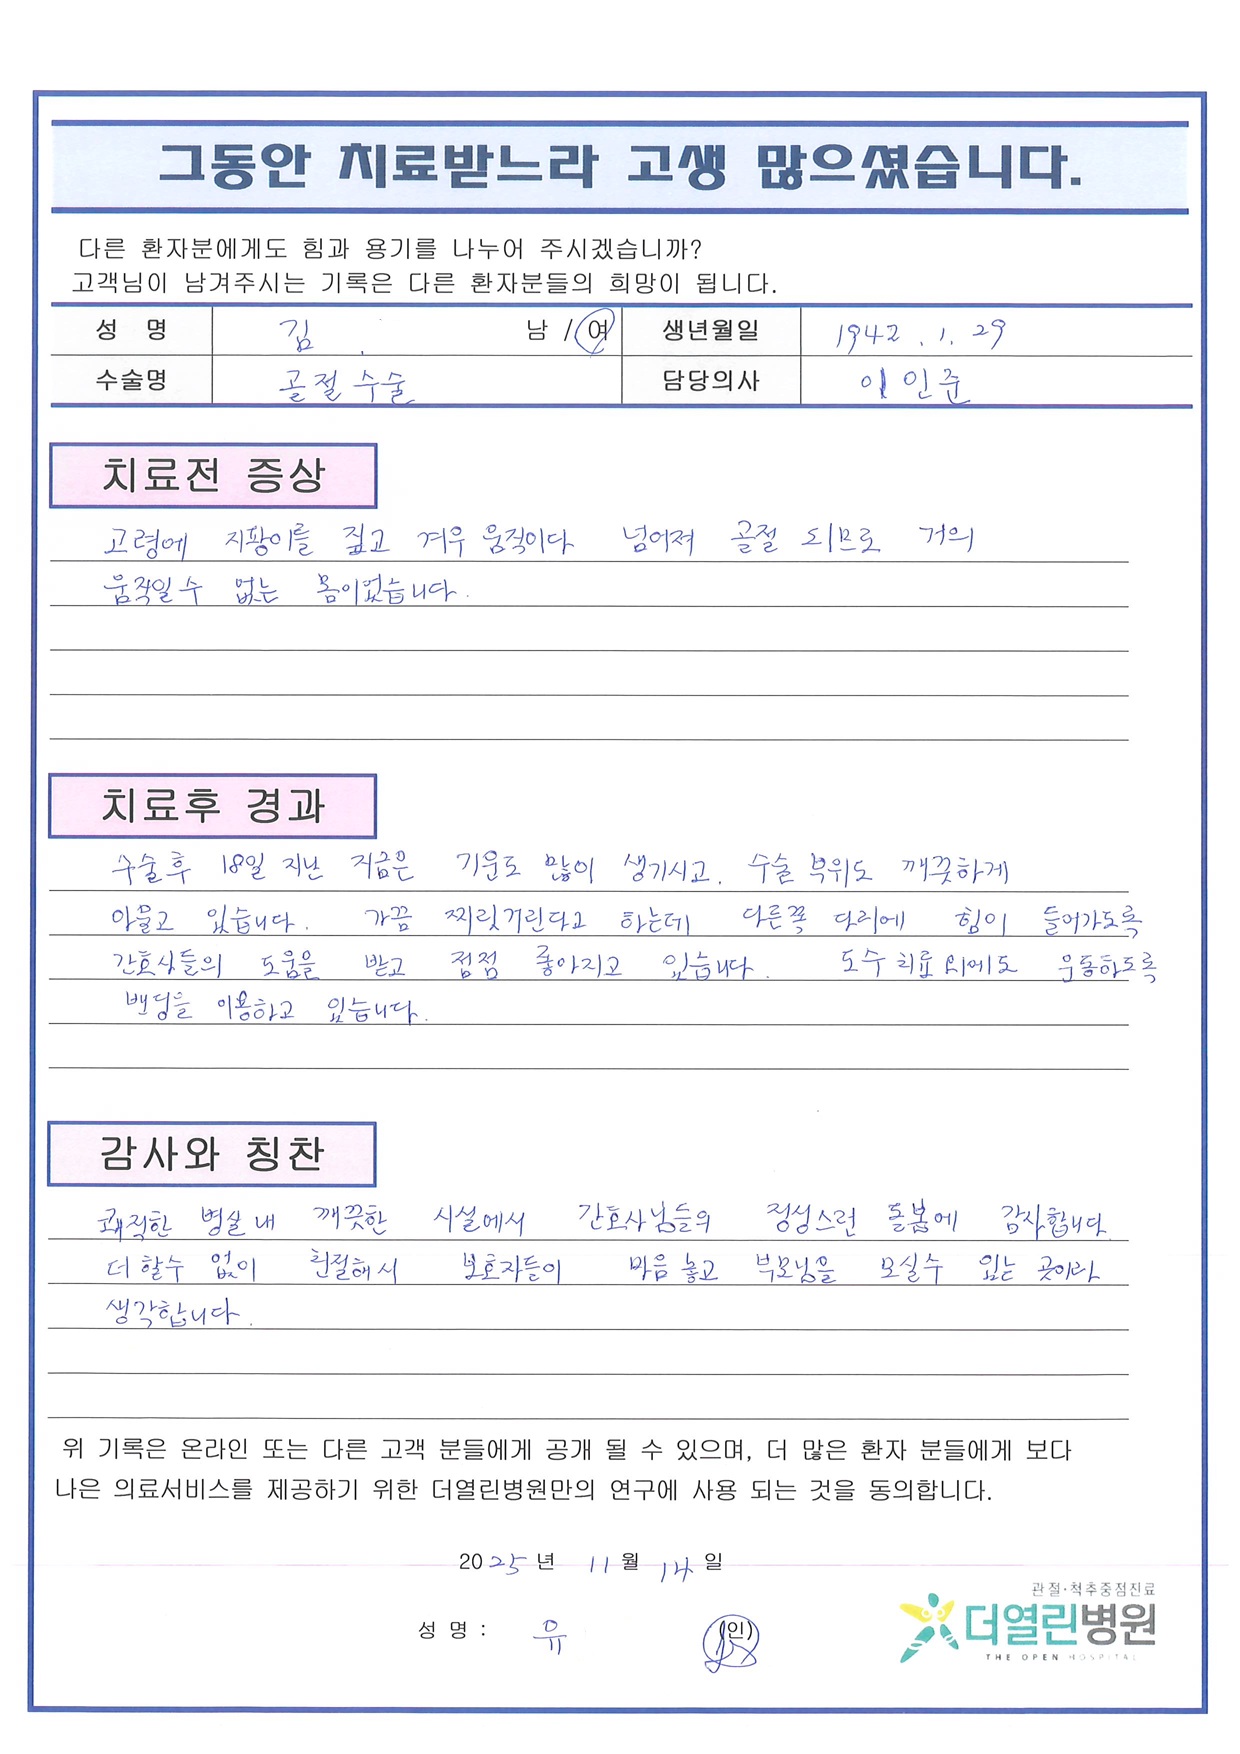 그동안 치료받느라 고생 많으셨습니다.
다른 환자분에게도 힘과 용기를 나누어 주시겠습니까?
고객님이 남겨주시는 기록은 다른 환자분들의 희망이 됩니다.
성 명 김 남 / 여 생년월일 1942. 1. 29
수술명 골절수술 담당의사 이인준
치료전 증상
고령에 지팡이를 짚고 겨우 움직이다 넘어져 골절 되므로 거의
움직일수 없는 몸이었습니다.
치료후 경과
수술후 18일 지난 지금은 기운도 많이 생기시고. 수술 부위도 깨끗하게
아물고 있습니다. 가끔 찌릿거린다고 하는데 다른쪽 다리에 힘이 들어가도록
간호사들의 도움을 받고 점점 좋아지고 있습니다. 도수치료 외에도 운동하도록
밴딩을 이용하고 있습니다.
감사와 칭찬
쾌적한 병실내 깨끗한 시설에서 간호사님들의 정성스런 돌봄에 감사합니다
더할수 없이 친절해서 보호자들이 마음 놓고 부모님을 모실수 있는 곳이라
생각합니다.
위 기록은 온라인 또는 다른 고객 분들에게 공개 될 수 있으며, 더 많은 환자 분들에게 보다
나은 의료서비스를 제공하기 위한 더열린병원만의 연구에 사용 되는 것을 동의합니다.
2025년 11월 14일
성 명 : 유 (인)
관절·척추중점진료
더열린병원
THE OPEN HOSPITAL